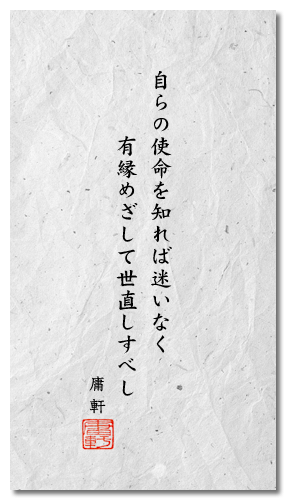 自らの使命を知れば迷いなく
有縁めざして世直しすべし
庸軒
庸軒